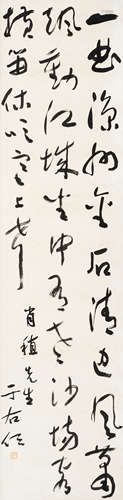 一曲凉州金石清边风萧
飒动江城坐中有老沙场客
横笛休吹塞上声
肖植先生
于右任